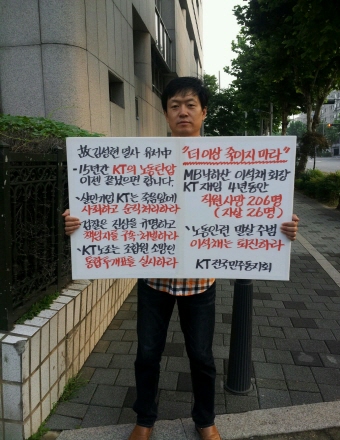 故 김성현 열사 유서中
· 15년간 KT의 노동탄압
이젠 끝났으면 합니다.
· 살인기업 KT는 죽음앞에
사죄하고 순직처리하라
· 검찰은 진상을 규명하고
책임자를 구속·처벌하라
· KT노조는 조합원 소망인
통합투개표를 실시하라
"더 이상 죽이지 마라"
MB낙하산 이석채 회장
KT 재임 4년동안
직원사망 206명
(자살 26명)
· 노동인권 말살 주범
이석채는 퇴진하라
KT 전국민주동지회